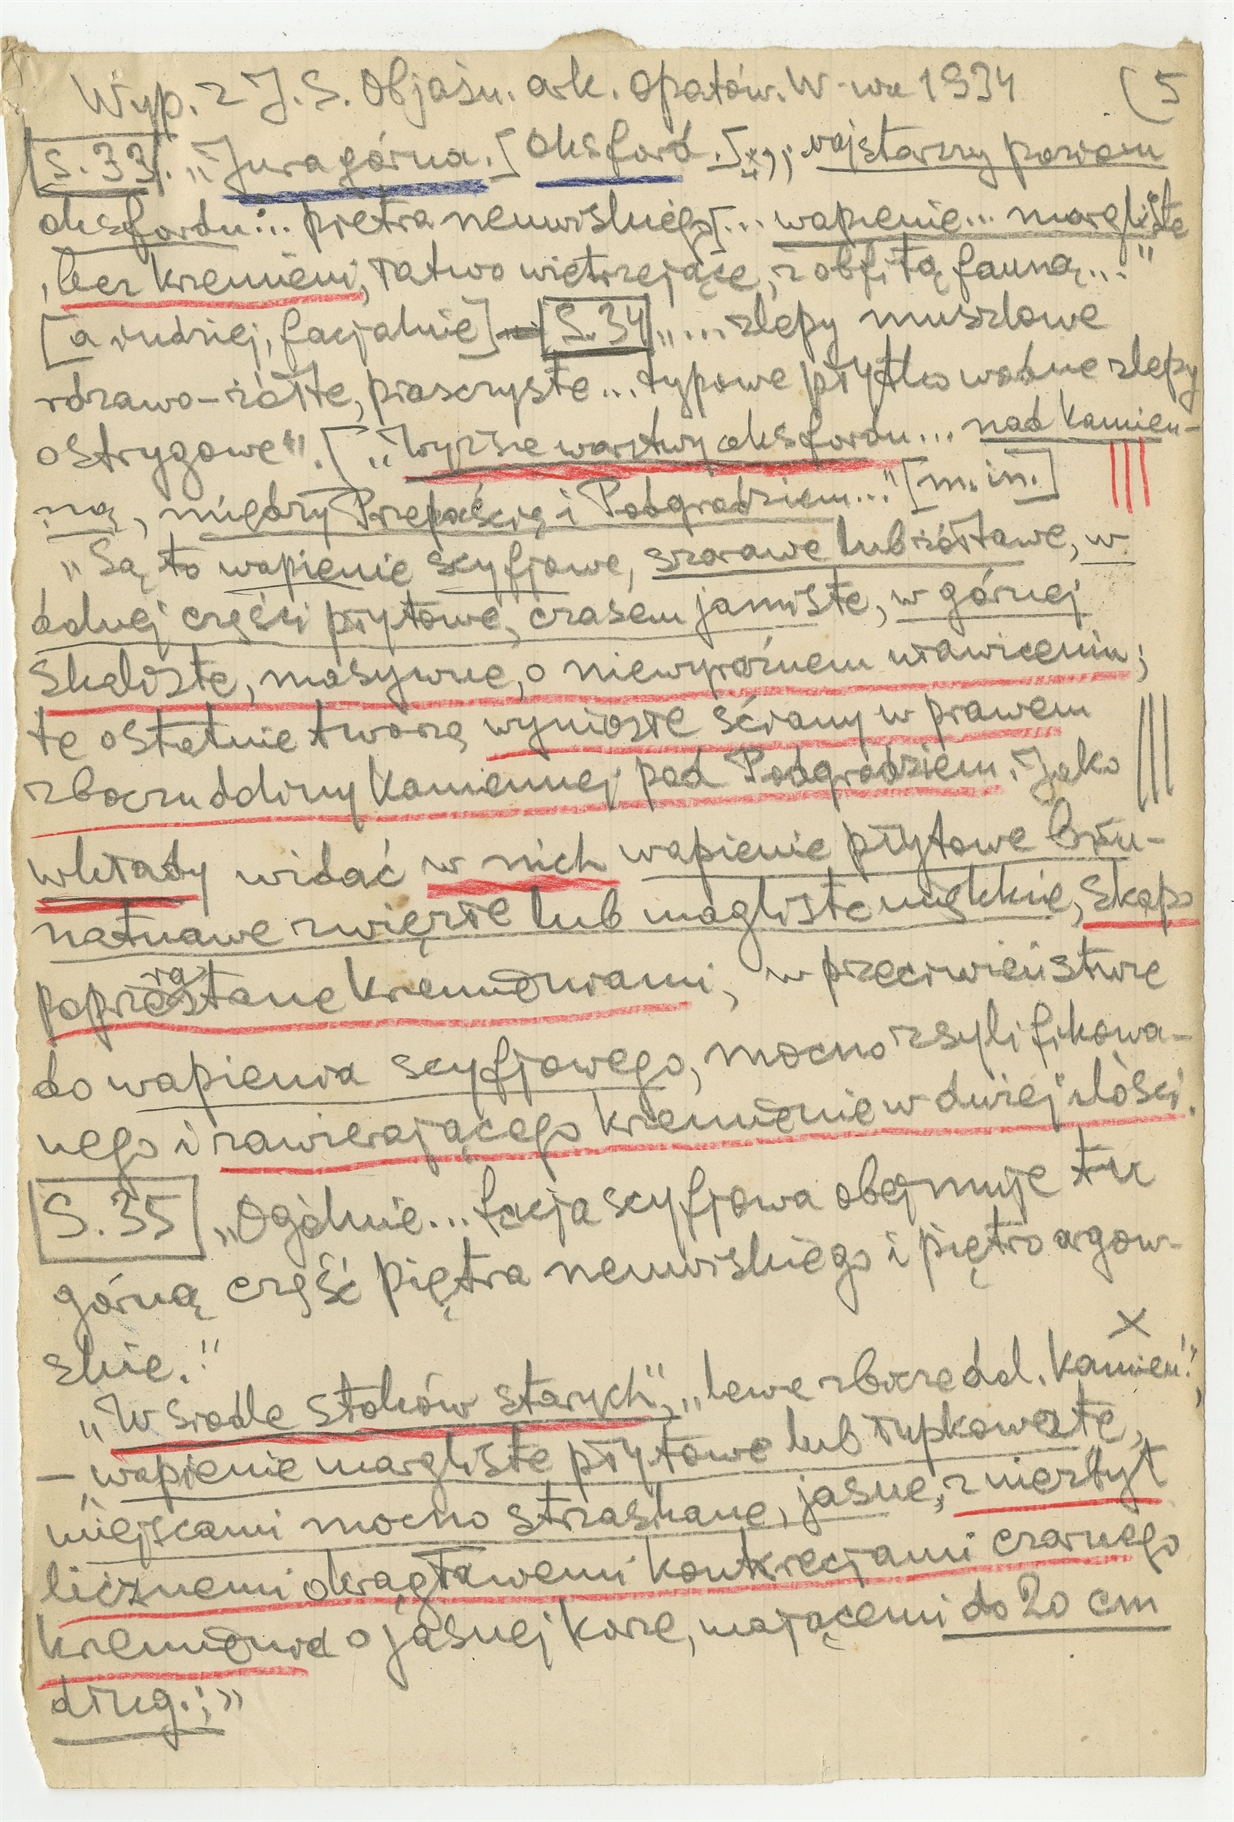 Wyp. z J. S. Objaśn. ark. Opatów. W-wa 1934 (5
[S. 33]. „Jura górna.] Oksford. [...] „najstarszy poziom
oksfordu... piętra newiskiego]... wapienie... margliste
, bez krzemieni, łatwo wietrzejące, z obfitą fauną..."
[a rzadziej, facjalnie] — [S.34] „... zlepy muszlowe
rdzawo-żółte, piaszczyste... typowe płytkowodne zlepy
ostrygowe". [„Wyższe warstwy oksfordu... nad Kamien-
ną, między Przepaścią i Podgrodziem..." [m. in.]
„Są to wapienie scyfjowe, szarawe lub żółtawe, w
dolnej części płytowe, czasem jamiste, w górnej
skaliste, masywne, o niewyraźnem uławiceniu;
te ostatnie tworzą wyniosłe ściany w prawem
zboczu doliny Kamiennej pod Podgrodziem. Jako
wkłady widać w nich wapienie płytowe bru-
natnawe zwięzłe lub margliste miękkie, skąpo
poprzerastane krzemieniami, w przeciwieństwie
do wapienia scyfjowego, mocno zsylifikowa-
nego i zawierającego krzemienie w dużej ilości.
[S. 35] „Ogólnie... facja scyfjowa obejmuje tu
górną część piętra newiskiego i piętro argow-
skie."
X
„W siodle Stoków Starych", „lewe zbocze dol. Kamien.",
— „wapienie margliste płytowe lub łupkowate,
miejscami mocno strzaskane, jasne, z niezbyt
licznemi okrągławemi konkrecjami czarnego
krzemienia o jasnej korze, mającemi do 20 cm
dług.;"